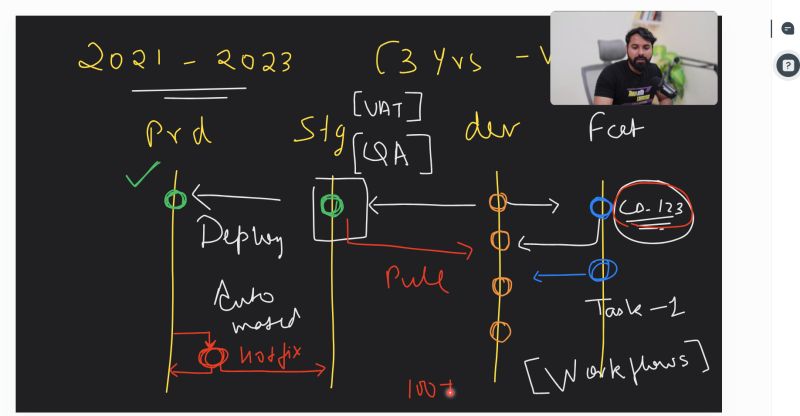 2021 - 2023 (3 Yrs -
Prd Stg [UAT] [QA] dev Feat
CD-123
Deploy
Pull
Auto
mated
Task-1
hotfix
[Workflows]
100+